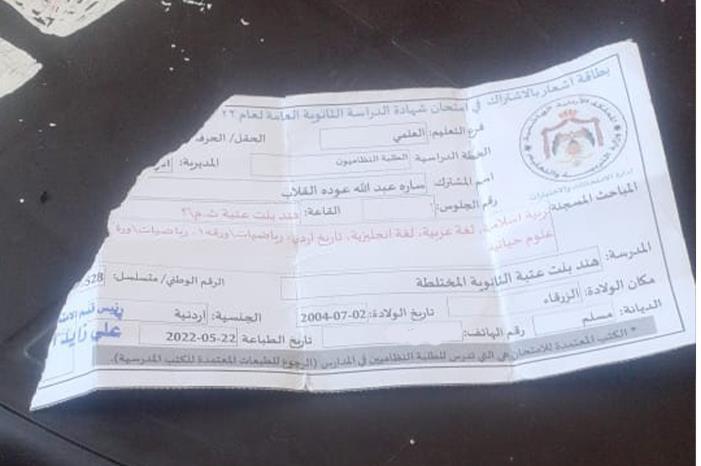 بطاقة اشعار بالاشتراك في امتحان شهادة الدراسة الثانوية العامة لعام ٢٢
المملكة الأردنية الهاشمية
وزارة التربية والتعليم
ادارة الامتحانات والاختبارات
فرع التعليم: العلمي الحقل/ الحرف
الخطة الدراسية الطلبة النظاميون المديرية:
اسم المشترك ساره عبد الله عوده القلاب
رقم الجلوس: القاعة: هند بنت عتبة ث.م/٢
المباحث المسجلة تربية اسلامية، لغة عربية، لغة انجليزية، تاريخ أردن، رياضيات/ورقة١، رياضيات/ورقة
علوم حياتية
المدرسة: هند بنت عتبة الثانوية المختلطة الرقم الوطني/ متسلسل: 528
مكان الولادة: الزرقاء تاريخ الولادة: 2004-07-02 الجنسية: اردنية
رئيس قسم
الديانة: مسلم رقم الهاتف: تاريخ الطباعة 2022-05-22
علي
* الكتب المعتمدة للامتحان هي التي تدرس للطلبة النظاميين في المدارس (الرجوع للطبعات المعتمدة للكتب المدرسية).